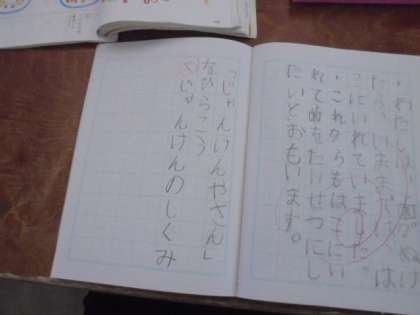 ・わたしは、歯がぬけ
たら、いままでは、は
こにいれていました。
・これからもはこにい
れて歯をたいせつにし
たいとおもいます。
「じゃんけんやさん」
をひらこう
じゃんけんのしくみ